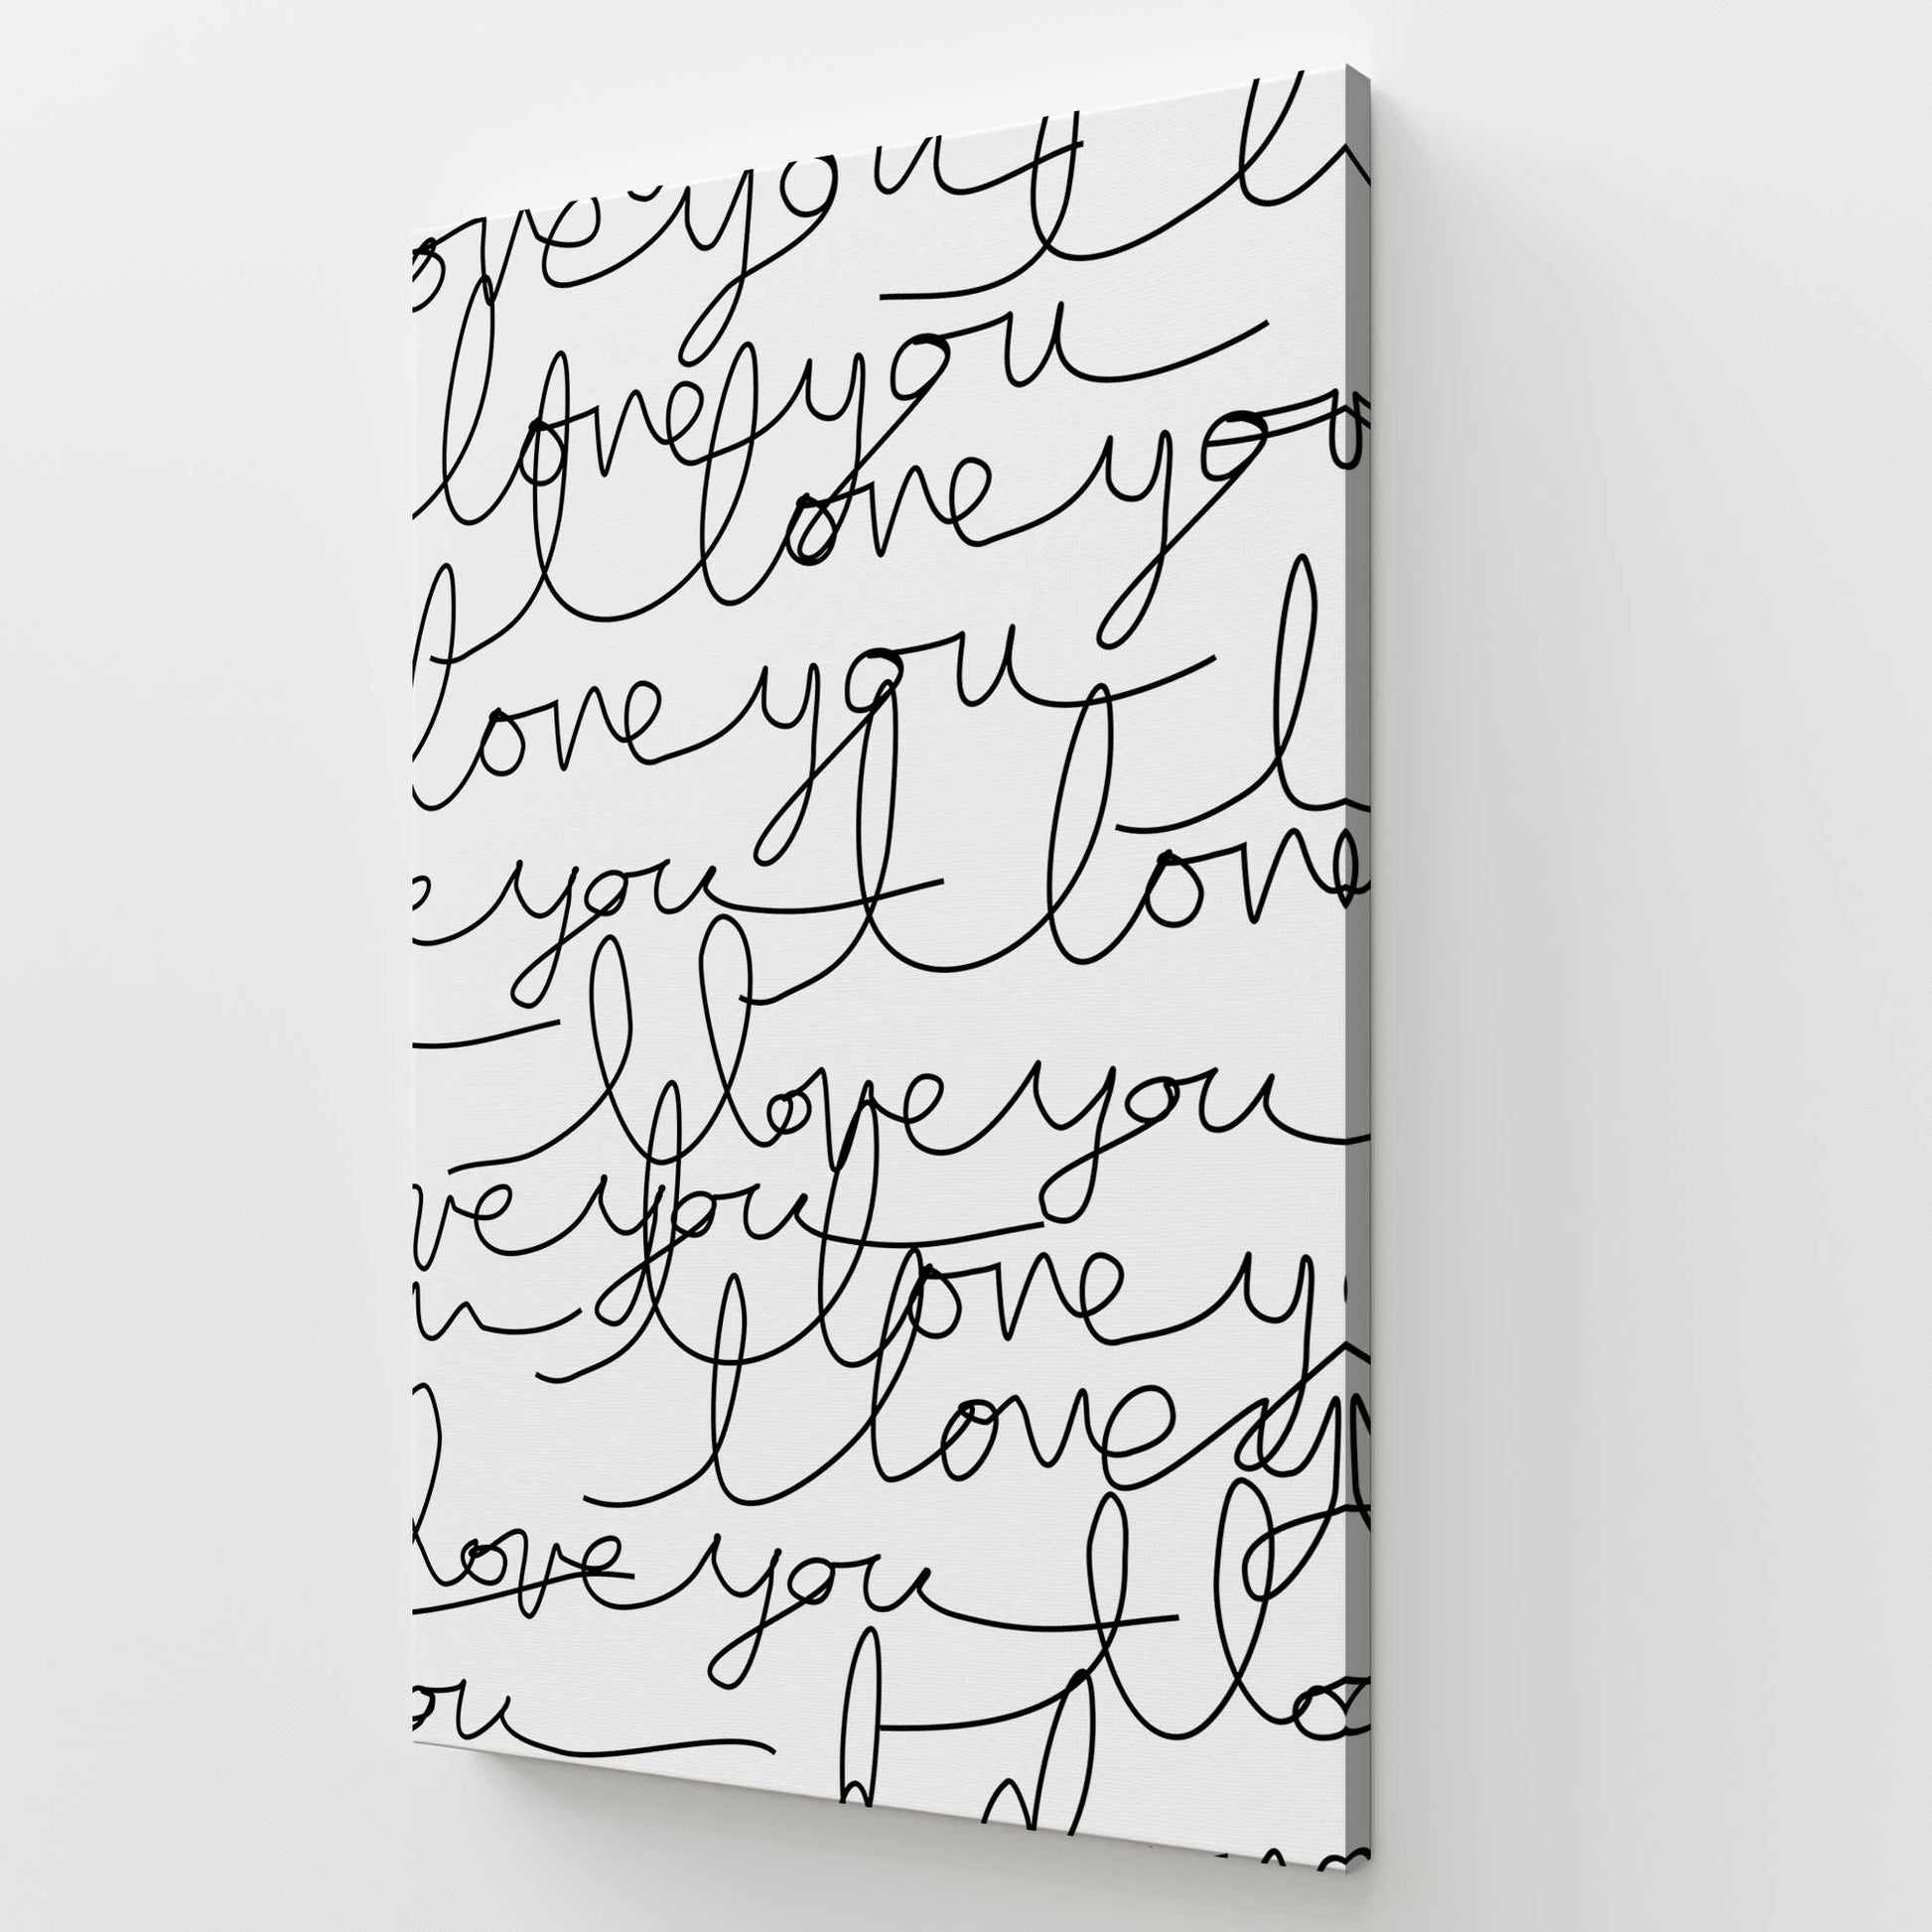 love you I l
I love you
I love you
love you I l
e you I love
I love you
ve you I love y
u I love y
love you I lo
ou I